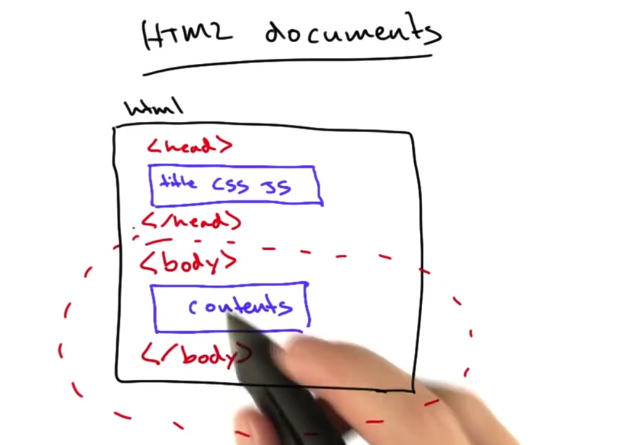 HTML documents
html
<head>
title CSS JS
</head>
<body>
contents
</body>